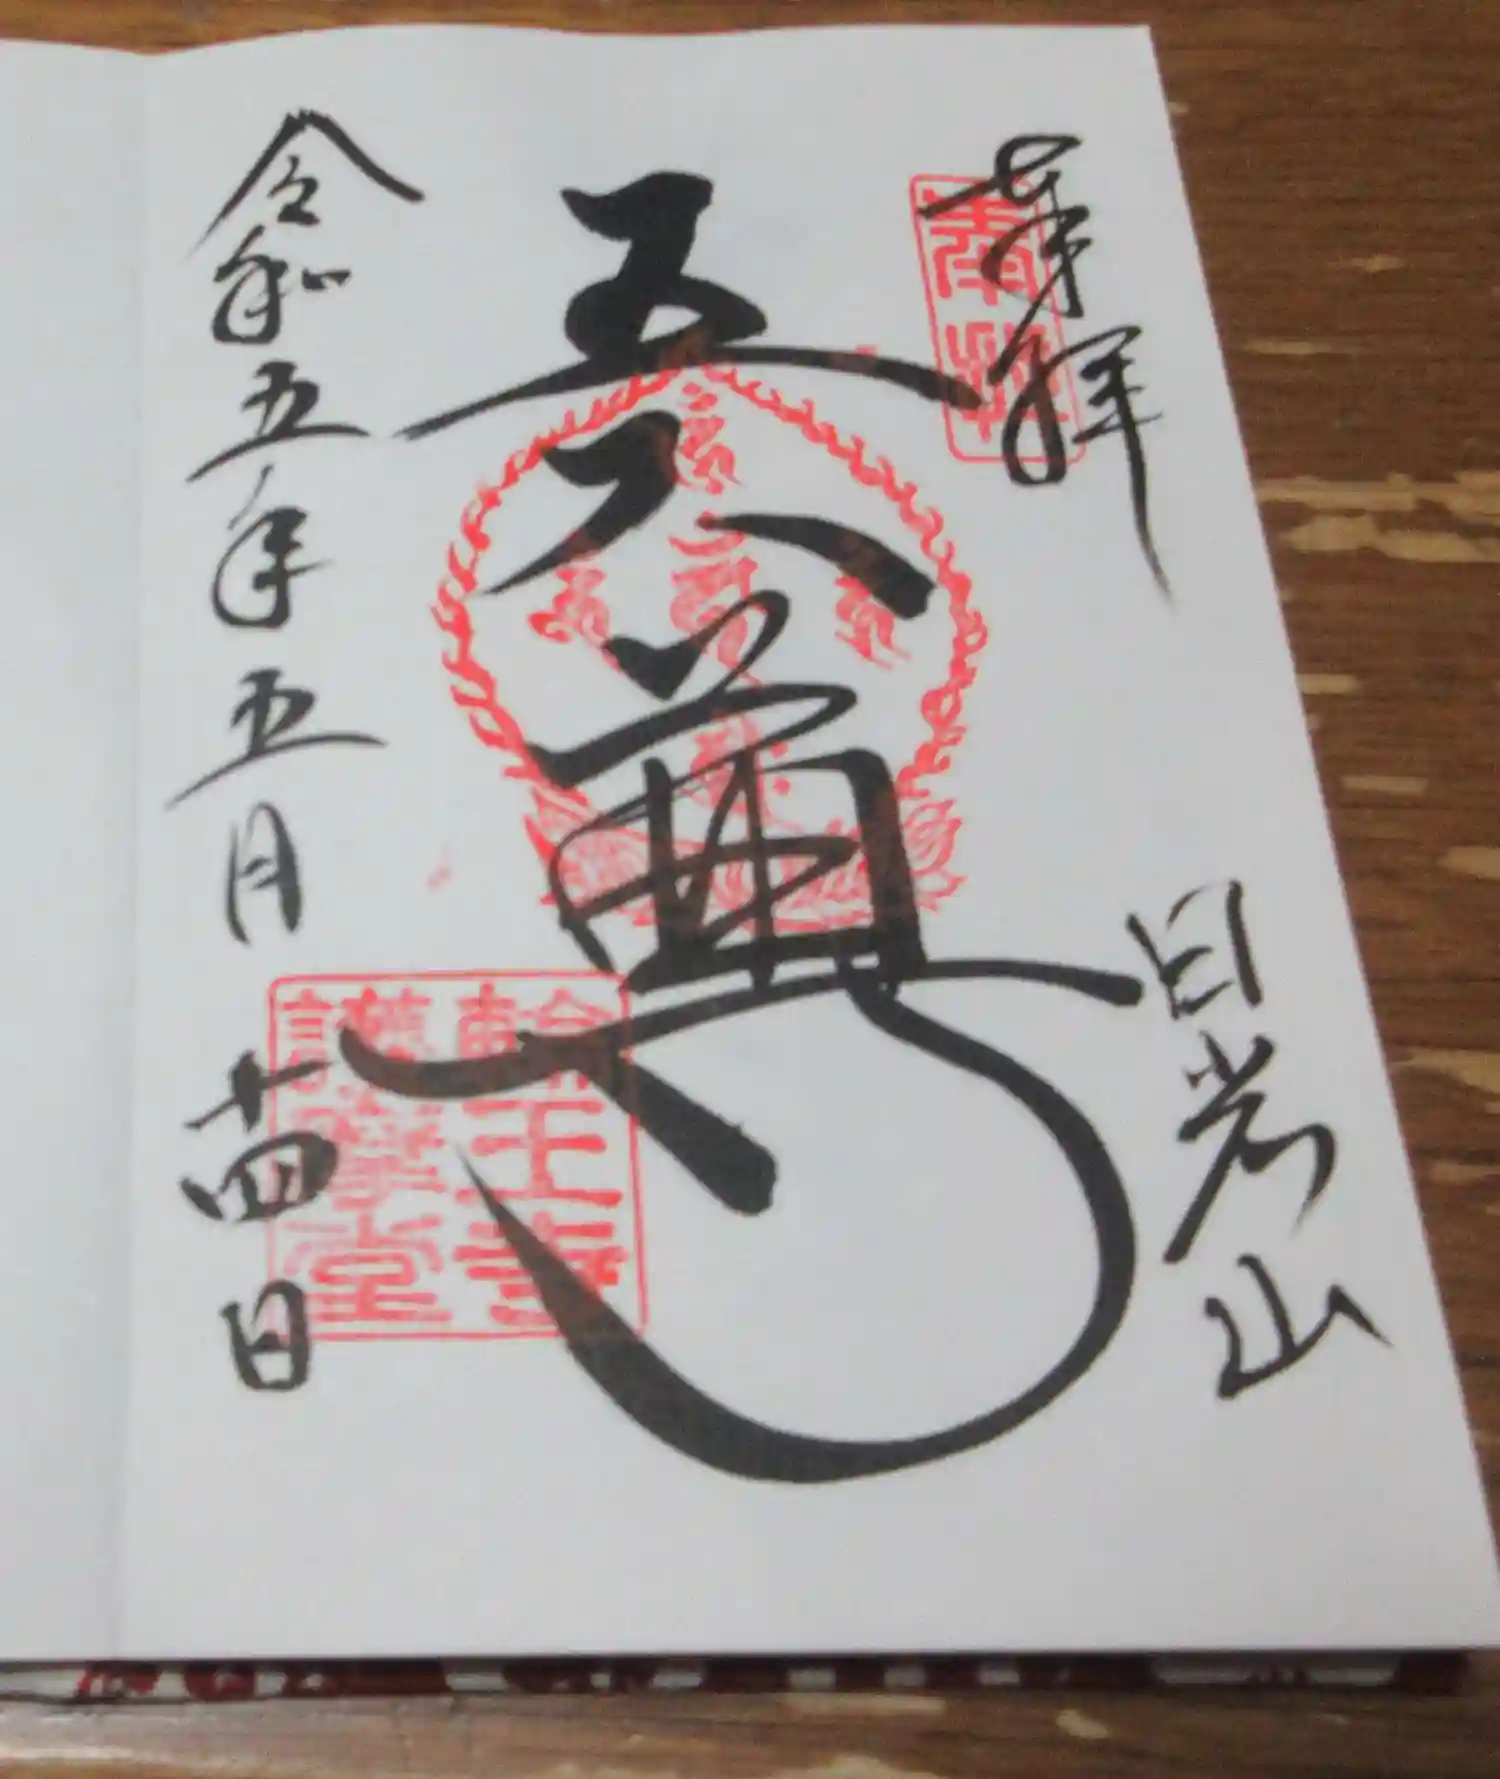 奉拝
日光山
五大尊
輪王寺
護摩堂
令和五年五月十四日